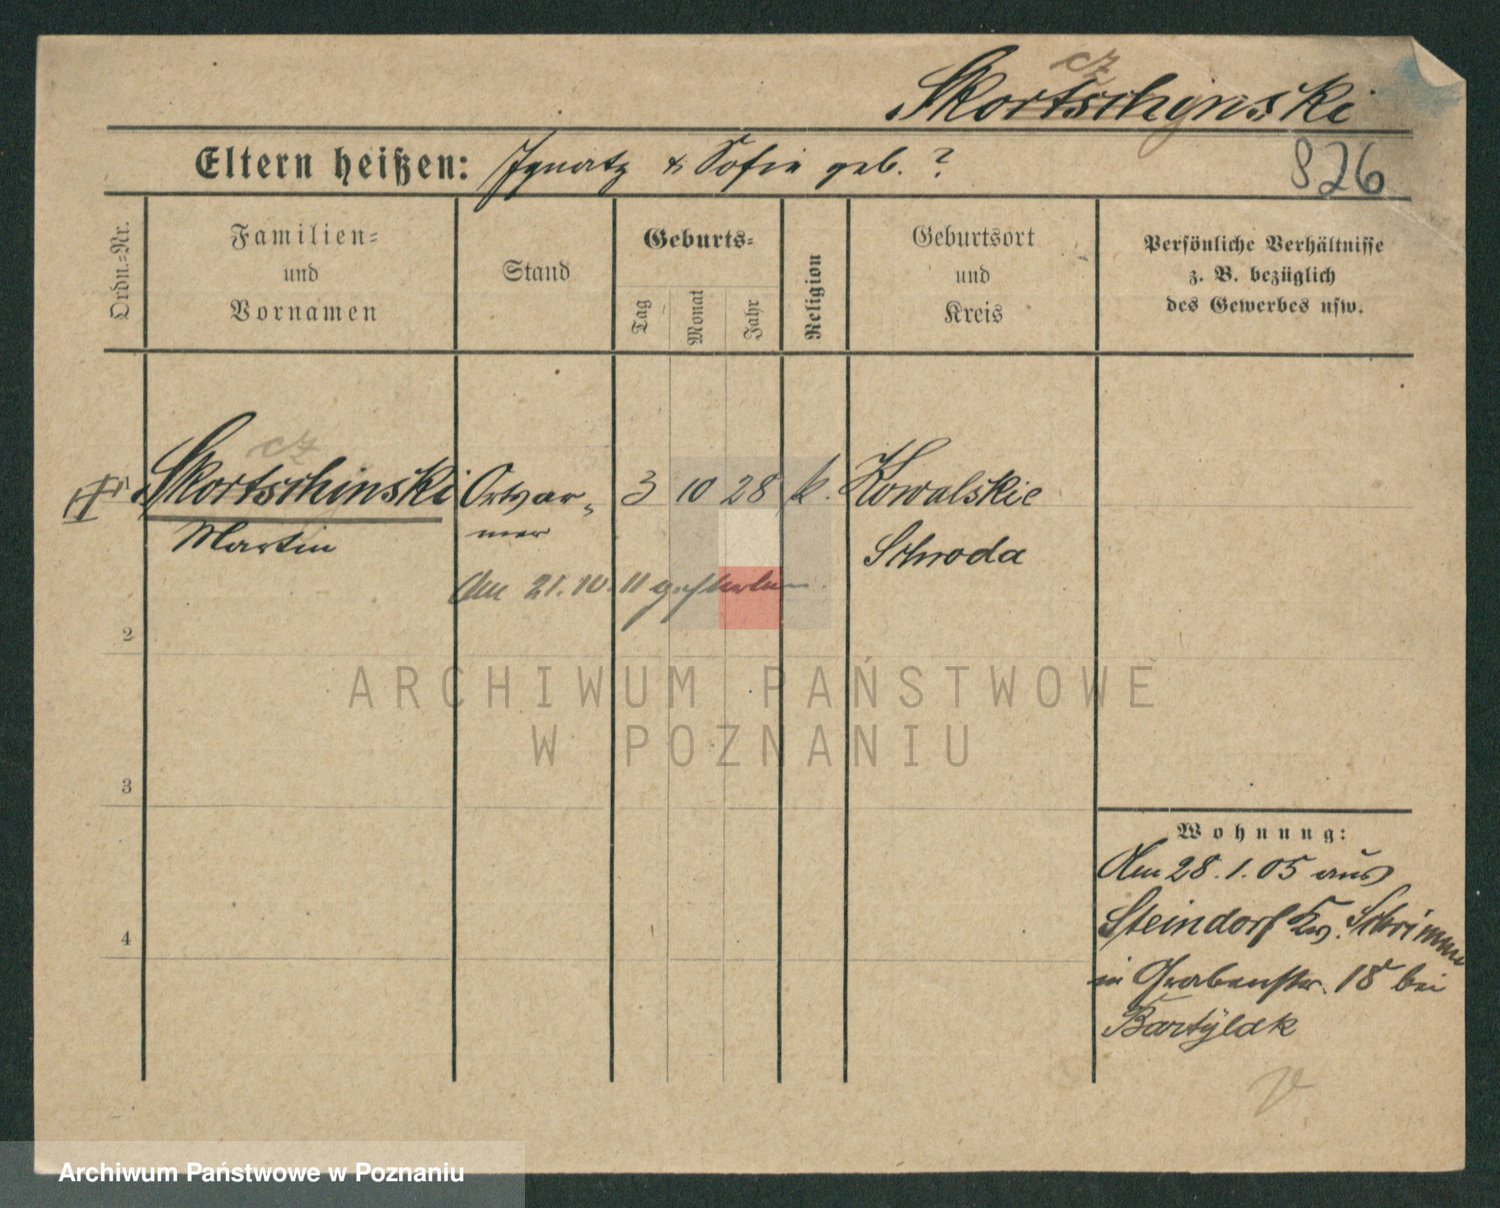 cz
Skortschinski
Eltern heißen: Ignatz & Sofia geb. ?
826
Ordn.=Nr.
Familien=
und
Vornamen
Stand
Geburts=
Tag
Monat
Jahr
Religion
Geburtsort
und
Kreis
Persönliche Verhältnisse
z. B. bezüglich
des Gewerbes usw.
cz
Skortschinski Ortsar=
Martin
mer
3 10 28 k. Kowalskie
Schroda
Am 21.10.11 gestorben.
2
3
4
ARCHIWUM PAŃSTWOWE
W POZNANIU
Wohnung:
Am 28.1.05 aus
Steindorf Krs. Schrimm
in Grabenstr. 18 bei
Archiwum Państwowe w Poznaniu